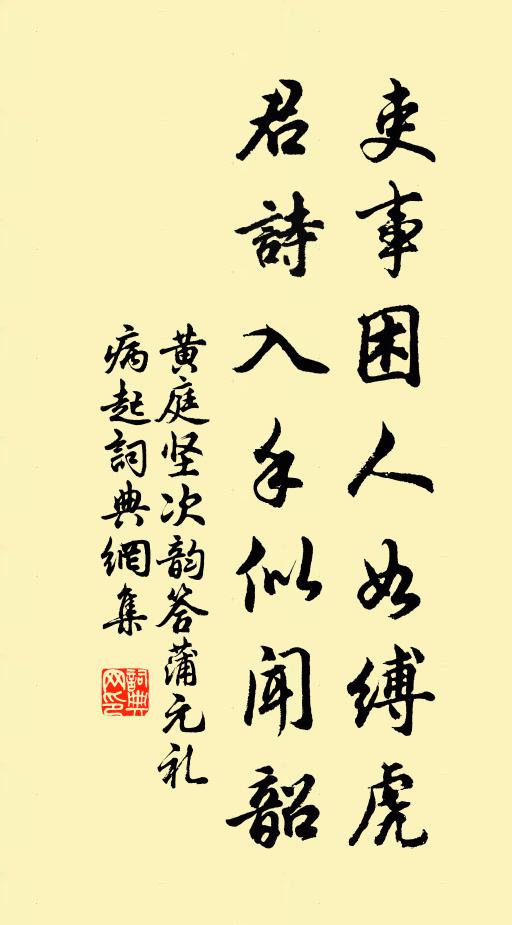 吏事困人如缚虎
君詩入手似闻韶
黄庭坚次韵答蒲元礼
病起詞典網集
詞典
网印